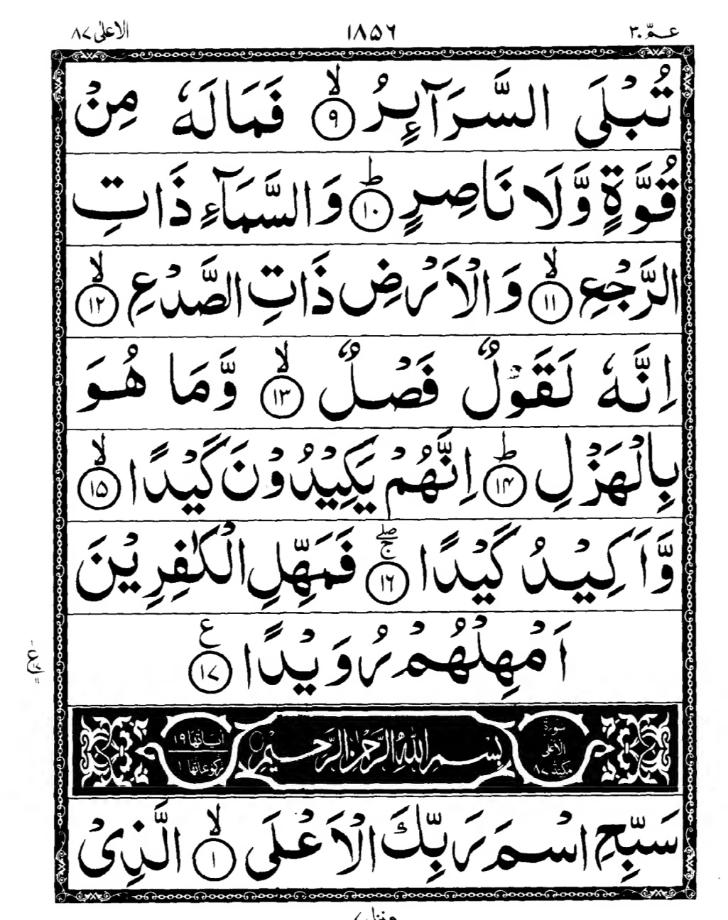 عمّ ٣٠
١٨٥٦
الاعلیٰ ٨٧
تُبۡلَى السَّرَآئِرُ ۙ﴿٩﴾ فَمَالَهٗ مِنۡ
قُوَّةٍ وَّلَا نَاصِرٍ ؕ﴿١٠﴾ وَالسَّمَآءِ ذَاتِ
الرَّجۡعِ ۙ﴿١١﴾ وَالۡاَرۡضِ ذَاتِ الصَّدۡعِ ۙ﴿١٢﴾
اِنَّهٗ لَقَوۡلٌ فَصۡلٌ ۙ﴿١٣﴾ وَّمَا هُوَ
بِالۡهَزۡلِ ؕ﴿١٤﴾ اِنَّهُمۡ يَكِيۡدُوۡنَ كَيۡدًا ۙ﴿١٥﴾
وَّاَكِيۡدُ كَيۡدًا ۚۖ﴿١٦﴾ فَمَهِّلِ الۡكٰفِرِيۡنَ
اَمۡهِلۡهُمۡ رُوَيۡدًا ﴿١٧﴾ ع
سورة الاعلى مكية ٨٧
بسم الله الرحمن الرحيم
اٰياتها ١٩
ركوعاتها ١
سَبِّحِ اسۡمَ رَبِّكَ الۡاَعۡلَى ۙ﴿١﴾ الَّذِىۡ